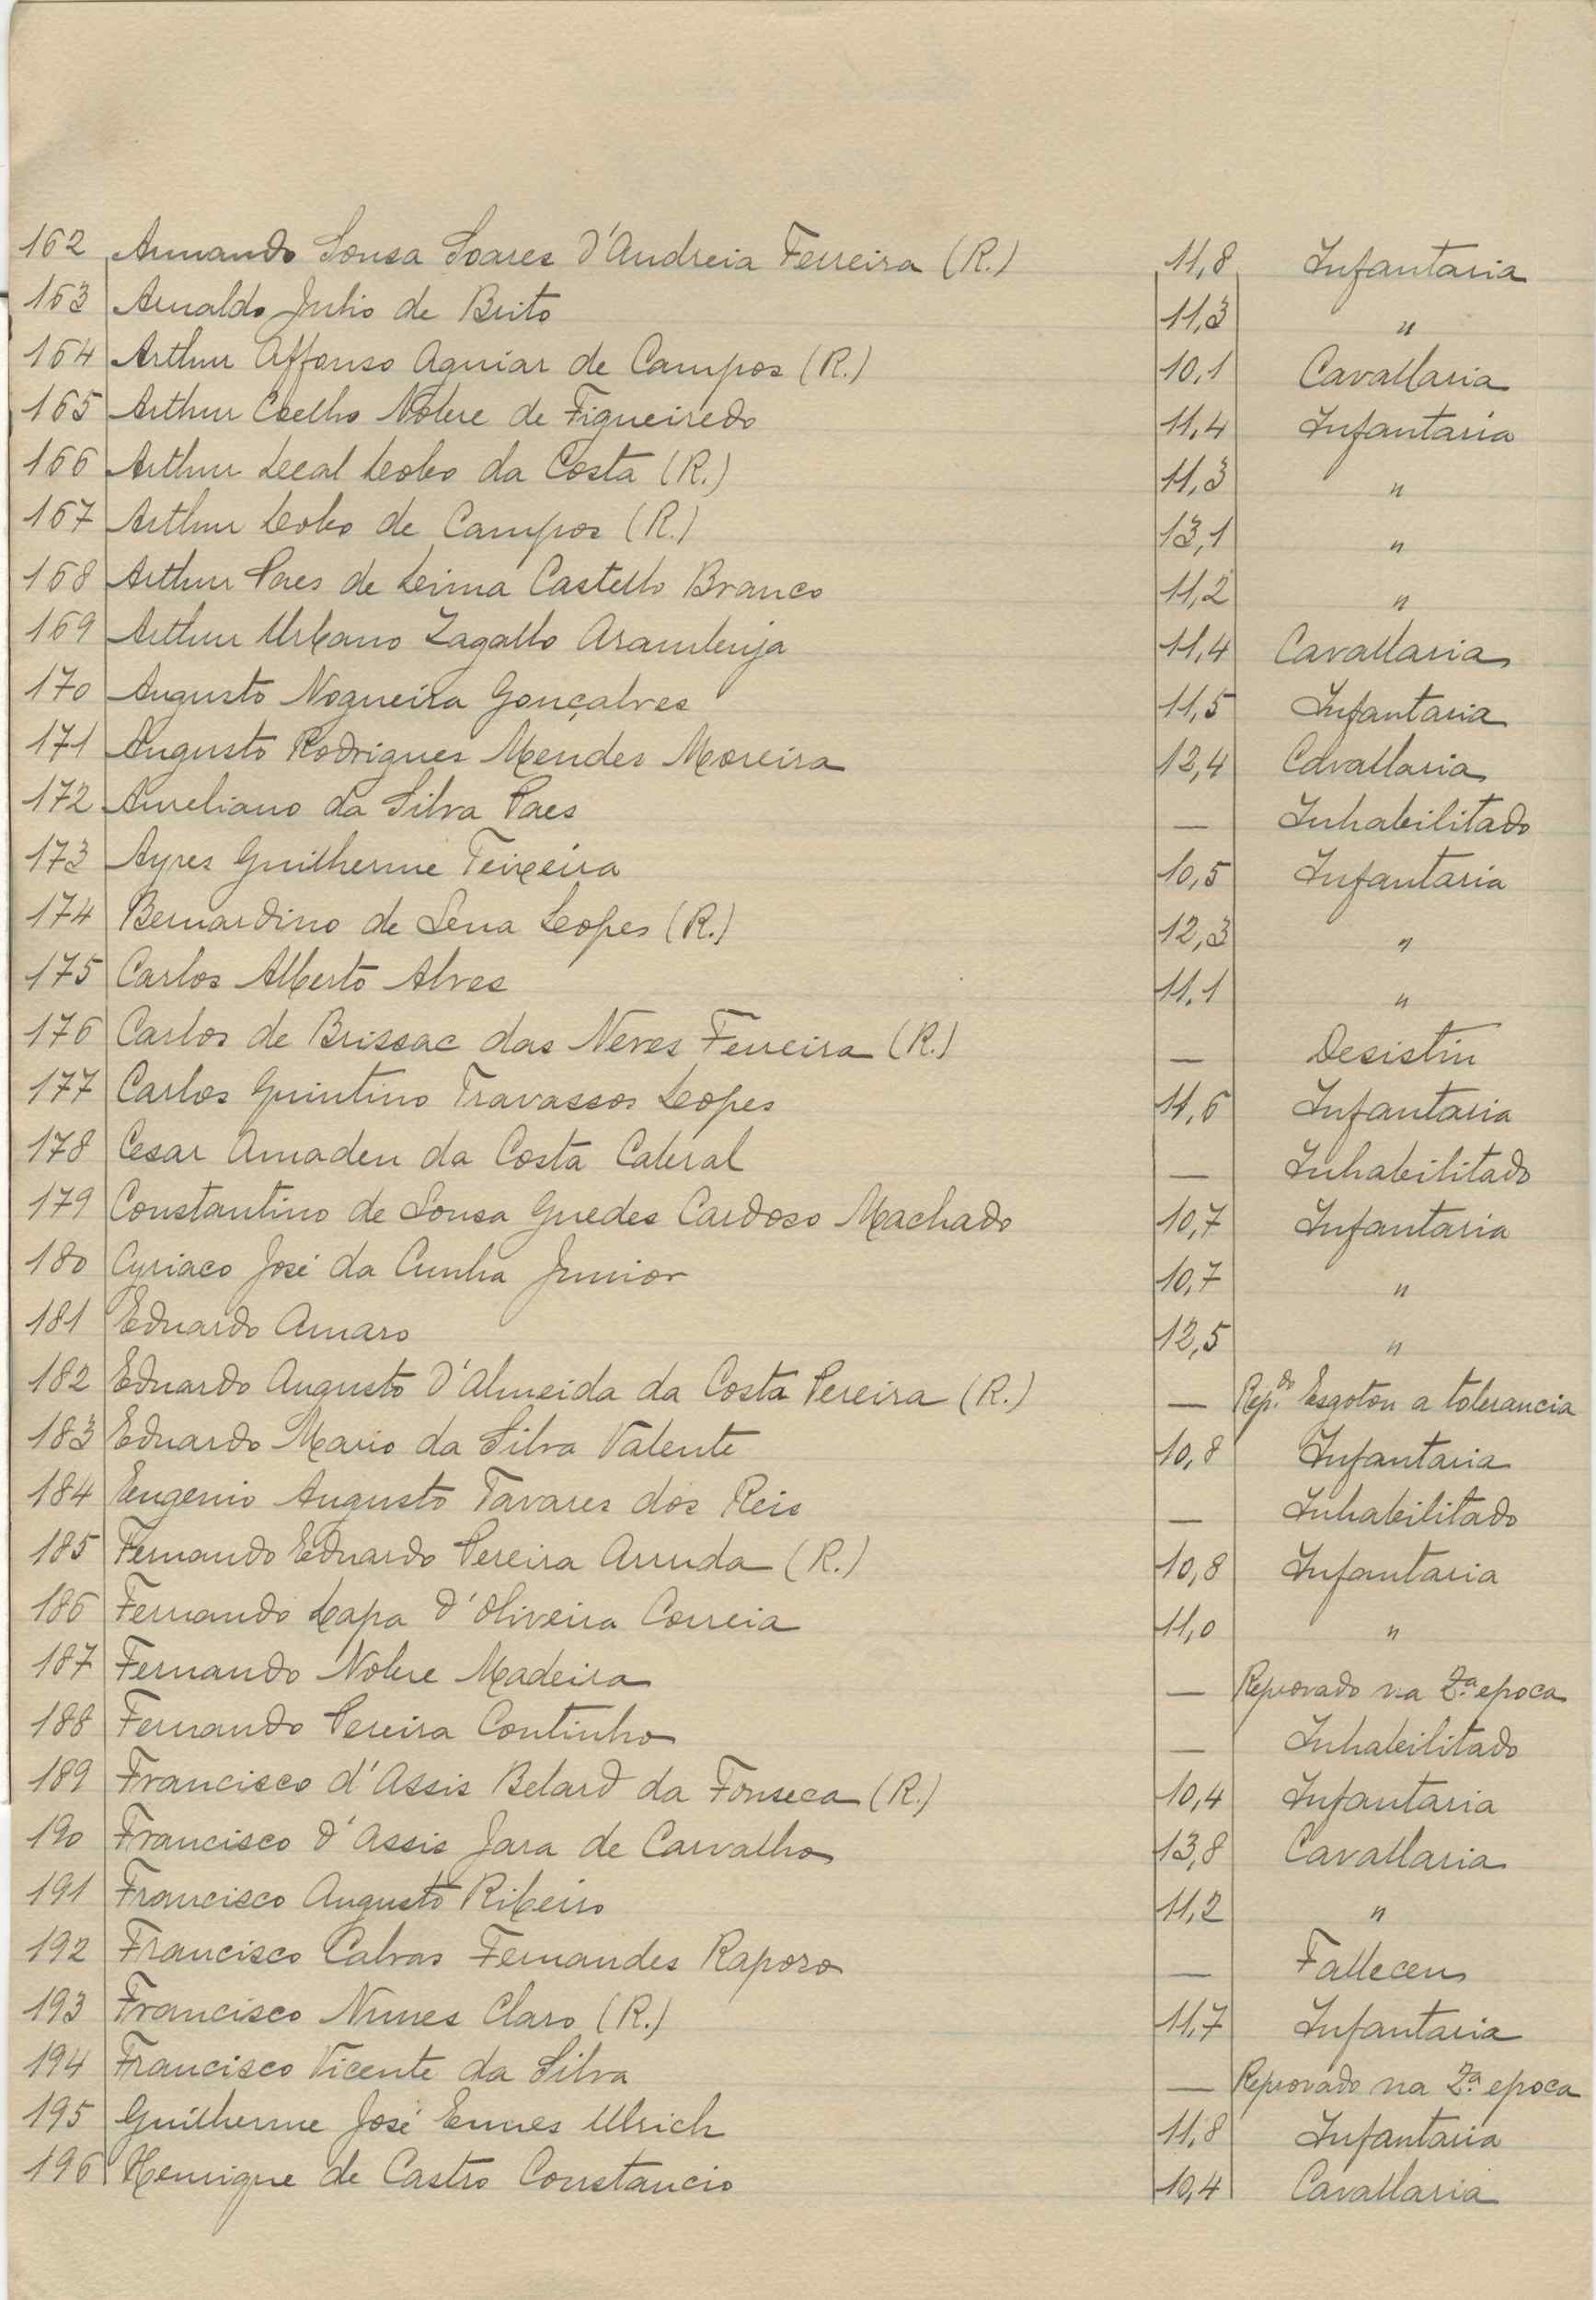 162 Armando Sousa Soares d'Andreia Ferreira (R.) 11,8 Infantaria
163 Arnaldo Julio de Brito 11,3 "
164 Arthur Affonso Aguiar de Campos (R.) 10,1 Cavallaria
165 Arthur Coelho Nobre de Figueiredo 11,4 Infantaria
166 Arthur Leal Lobo da Costa (R.) 11,3 "
167 Arthur Lobo de Campos (R.) 13,1 "
168 Arthur Paes de Lima Castello Branco 11,2 "
169 Arthur Urbano Zagallo Aramburja 11,4 Cavallaria
170 Augusto Nogueira Gonçalves 11,5 Infantaria
171 Augusto Rodrigues Mendes Moreira 12,4 Cavallaria
172 Aureliano da Silva Paes — Inhabilitado
173 Ayres Guilherme Teixeira 10,5 Infantaria
174 Bernardino de Sena Lopes (R.) 12,3 "
175 Carlos Alberto Alves 11,1 "
176 Carlos de Brissac das Neves Ferreira (R.) — Desistiu
177 Carlos Quintino Travassos Lopes 11,6 Infantaria
178 Cesar Amadeu da Costa Cabral — Inhabilitado
179 Constantino de Sousa Guedes Cardoso Machado 10,7 Infantaria
180 Cyriaco José da Cunha Junior 10,7 "
181 Eduardo Amaro 12,5 "
182 Eduardo Augusto d'Almeida da Costa Pereira (R.) — Rep.do Esgotou a tolerancia
183 Eduardo Mario da Silva Valente 10,8 Infantaria
184 Eugenio Augusto Tavares dos Reis — Inhabilitado
185 Fernando Eduardo Pereira Arruda (R.) 10,8 Infantaria
186 Fernando Lapa d'Oliveira Correia 11,0 "
187 Fernando Nobre Madeira — Reprovado na 2.ª epoca
188 Fernando Pereira Coutinho — Inhabilitado
189 Francisco d'Assis Belard da Fonseca (R.) 10,4 Infantaria
190 Francisco d'Assis Jara de Carvalho 13,8 Cavallaria
191 Francisco Augusto Ribeiro 11,2 "
192 Francisco Calvas Fernandes Raposo — Falleceu
193 Francisco Nunes Claro (R.) 11,7 Infantaria
194 Francisco Vicente da Silva — Reprovado na 2.ª epoca
195 Guilherme José Ennes Ulrich 11,8 Infantaria
196 Henrique de Castro Constancio 10,4 Cavallaria